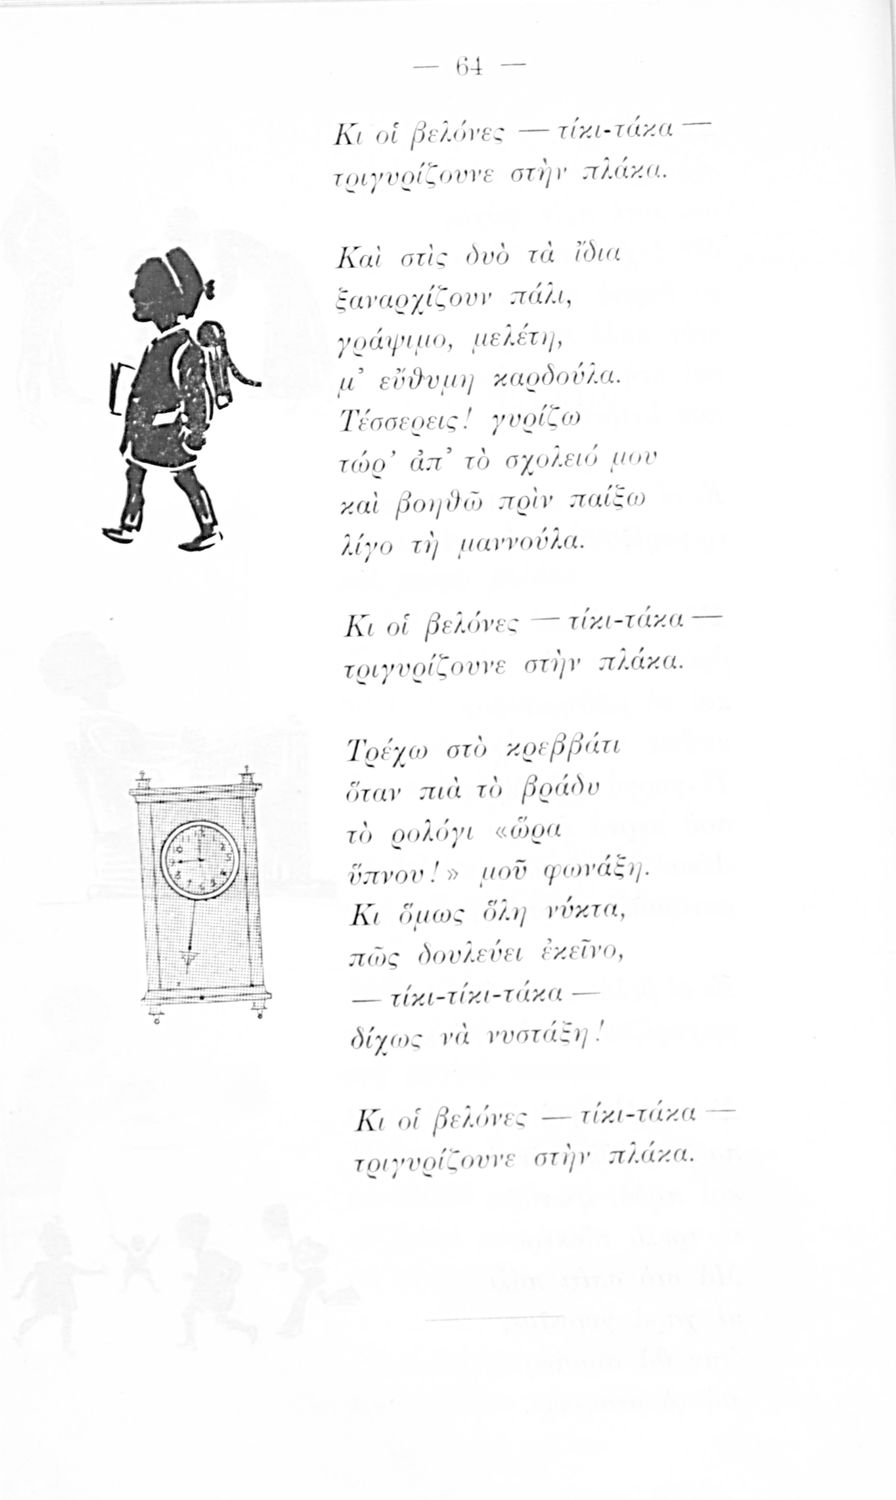 — 64 —
Κι οἱ βελόνες — τίκι-τάκα —
τριγυρίζουνε στὴν πλάκα.
Καὶ στὶς δυὸ τὰ ἴδια
ξαναρχίζουν πάλι,
γράψιμο, μελέτη,
μ’ εὔθυμη καρδούλα.
Τέσσερεις! γυρίζω
τώρ’ ἀπ’ τὸ σχολειό μου
καὶ βοηθῶ πρὶν παίξω
λίγο τὴ μαννούλα.
Κι οἱ βελόνες — τίκι-τάκα —
τριγυρίζουνε στὴν πλάκα.
Τρέχω στὸ κρεββάτι
ὅταν πιὰ τὸ βράδυ
τὸ ρολόγι «ὥρα
ὕπνου!» μοῦ φωνάξη.
Κι ὅμως ὅλη νύκτα,
πῶς δουλεύει ἐκεῖνο,
— τίκι-τίκι-τάκα —
δίχως νὰ νυστάξη!
Κι οἱ βελόνες — τίκι-τάκα —
τριγυρίζουνε στὴν πλάκα.